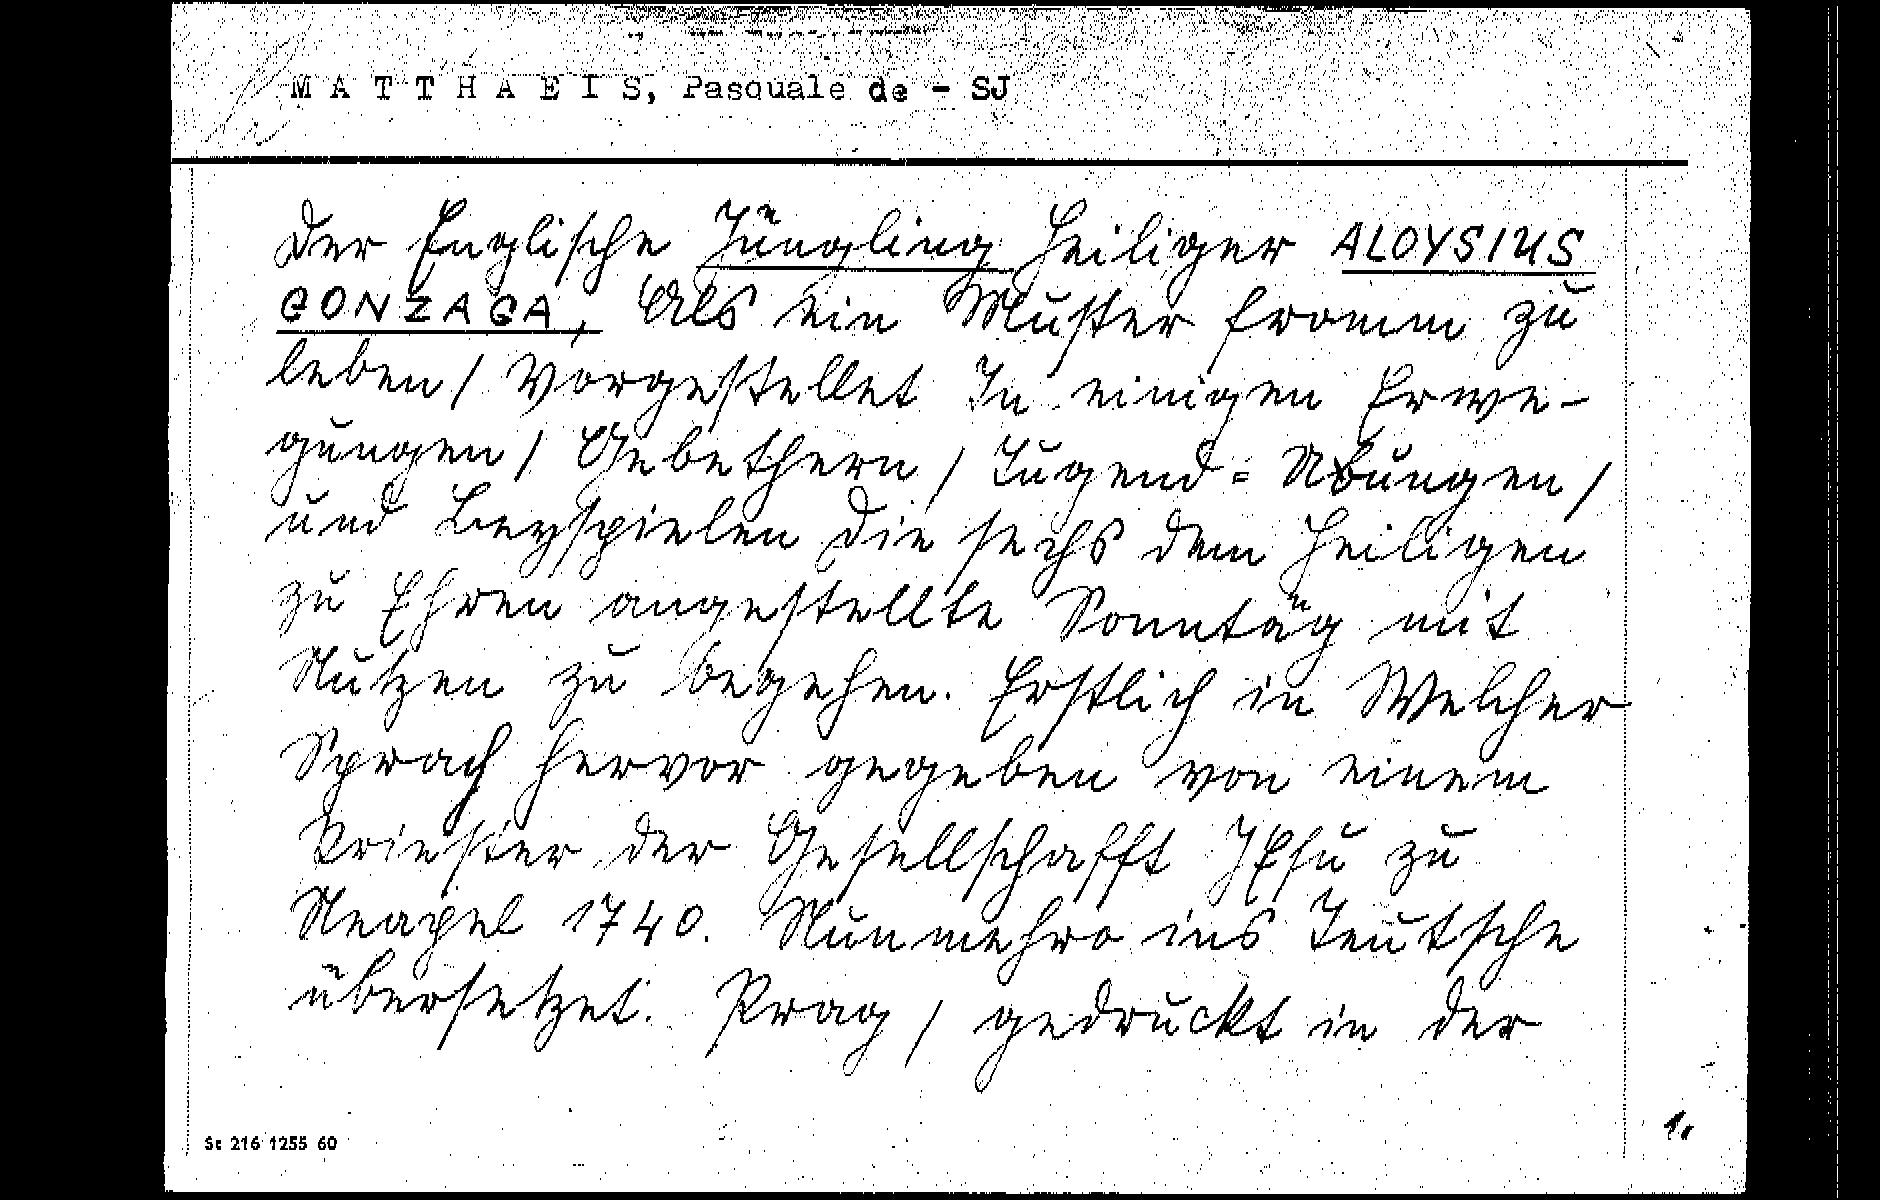 MATTHAEIS, Pasquale de - SJ
Der Englische Jüngling Heiliger ALOYSIUS
GONZAGA, Als ein Muster fromm zu
leben/ Vorgestellet In einigen Erwe-
gungen/ Gebethern/ Tugend= Ubungen/
und Beyspielen die sechs dem Heiligen
zu Ehren angestellte Sonntäg mit
Nutzen zu begehen. Erstlich in Welcher
Sprach hervor gegeben von einem
Priester der Gesellschafft JEsu zu
Neapel 1740. Nunmehro ins Teutsche
übersetzet. Prag/ gedruckt in der
St 216 1255 60
1.